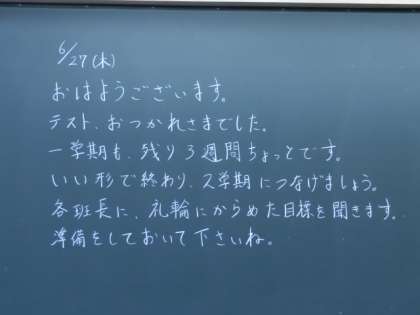 6/27(木)
おはようございます。
テスト、おつかれさまでした。
一学期も、残り3週間ちょっとです。
いい形で終わり、2学期につなげましょう。
各班長に、礼輪にからめた目標を聞きます。
準備をしておいて下さいね。